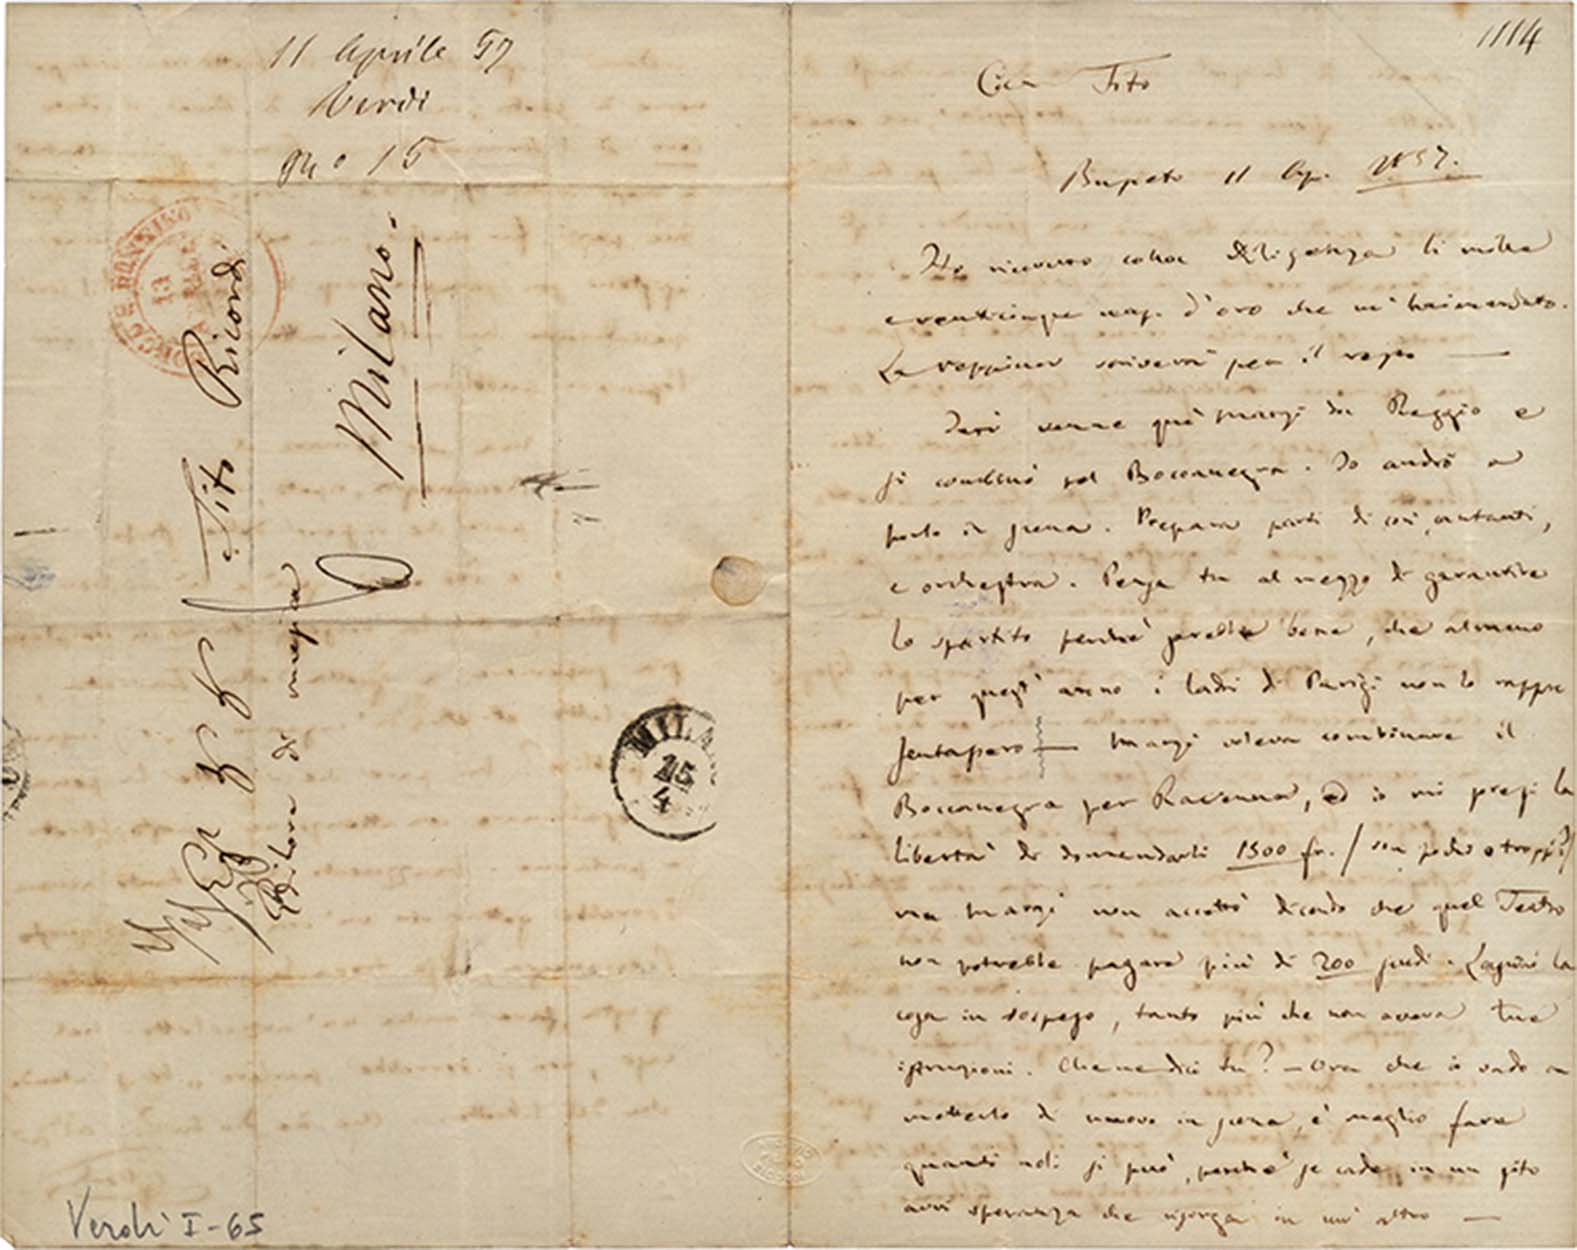 11 Aprile 57
Verdi
15
Tito Ricordi
Editore di musica
Milano.
MILA
15
4
13
Verdi I-65
1114
Caro Tito
Busseto 11 Ap. 1857.
Ho ricevuto colla diligenza li mille
e venticinque nap. d'oro che m'hai mandato.
La Peppina scriverà per il
Jeri venne quì Marzi da Reggio e
si combinò pel Boccanegra. Io andrò a
porlo in scena. Prepara parti di cori, cantanti,
e orchestra. Pensa tu al mezzo di garantire
lo spartito perchè sarebbe bene, che almeno
per quest'anno i ladri di Parigi non lo rappre
sentassero — Marzi voleva combinare il
Boccanegra per Ravenna, ed io mi presi la
libertà di domandarli 1500 fr. / son pochi o troppi? /
ma Marzi non accettò dicendo che quel Teatro
non potrebbe pagare più di 200 scudi. Lasciai la
cosa in sospeso, tanto più che non aveva tue
istruzioni. Che ne dici tu? — Ora che io vado a
metterlo di nuovo in scena, è meglio fare
quanti noli si può, perchè se cade in un sito
avvi speranza che risorga in un altro —